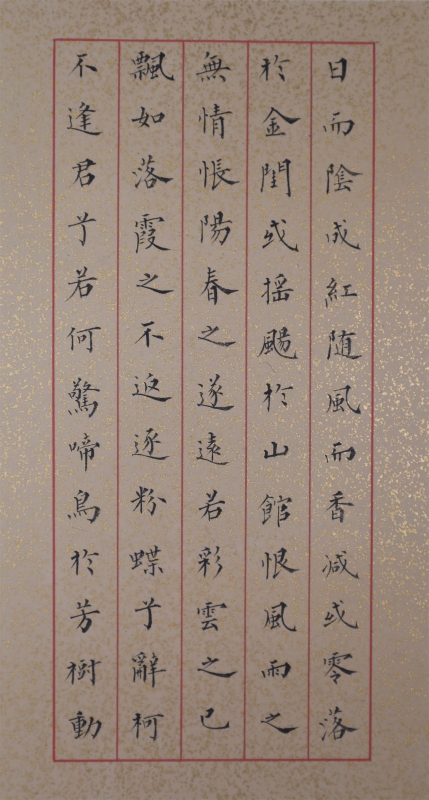 日而陰成紅随風而香減或零落
於金閨或揺颺於山館恨風雨之
無情悵陽春之遂遠若彩雲之已
飄如落霞之不返逐粉蝶兮辭柯
不逢君兮若何驚啼鳥於芳樹動